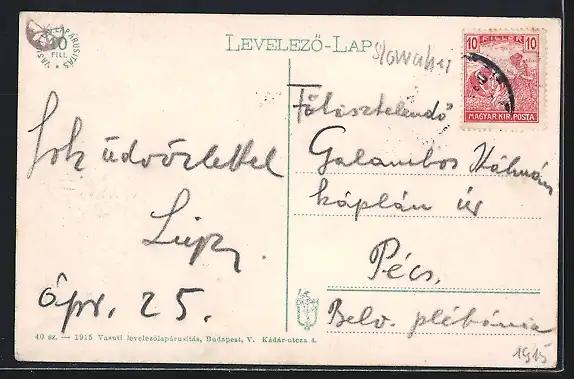 VASUTI LEVELEZŐLAPÁRUSÍTÁS
10
FILL
LEVELEZŐ-LAP
Slowakei
10 FILLÉR 10
MAGYAR KIR. POSTA
Főtisztelendő
Galambos Kálmán
káplán úr
Pécs.
Belv. plébánia
Sok üdvözlettel
Ápr. 25.
40 sz. — 1915 Vasuti levelezőlapárusitás, Budapest, V. Kádár-utcza 4.
1915